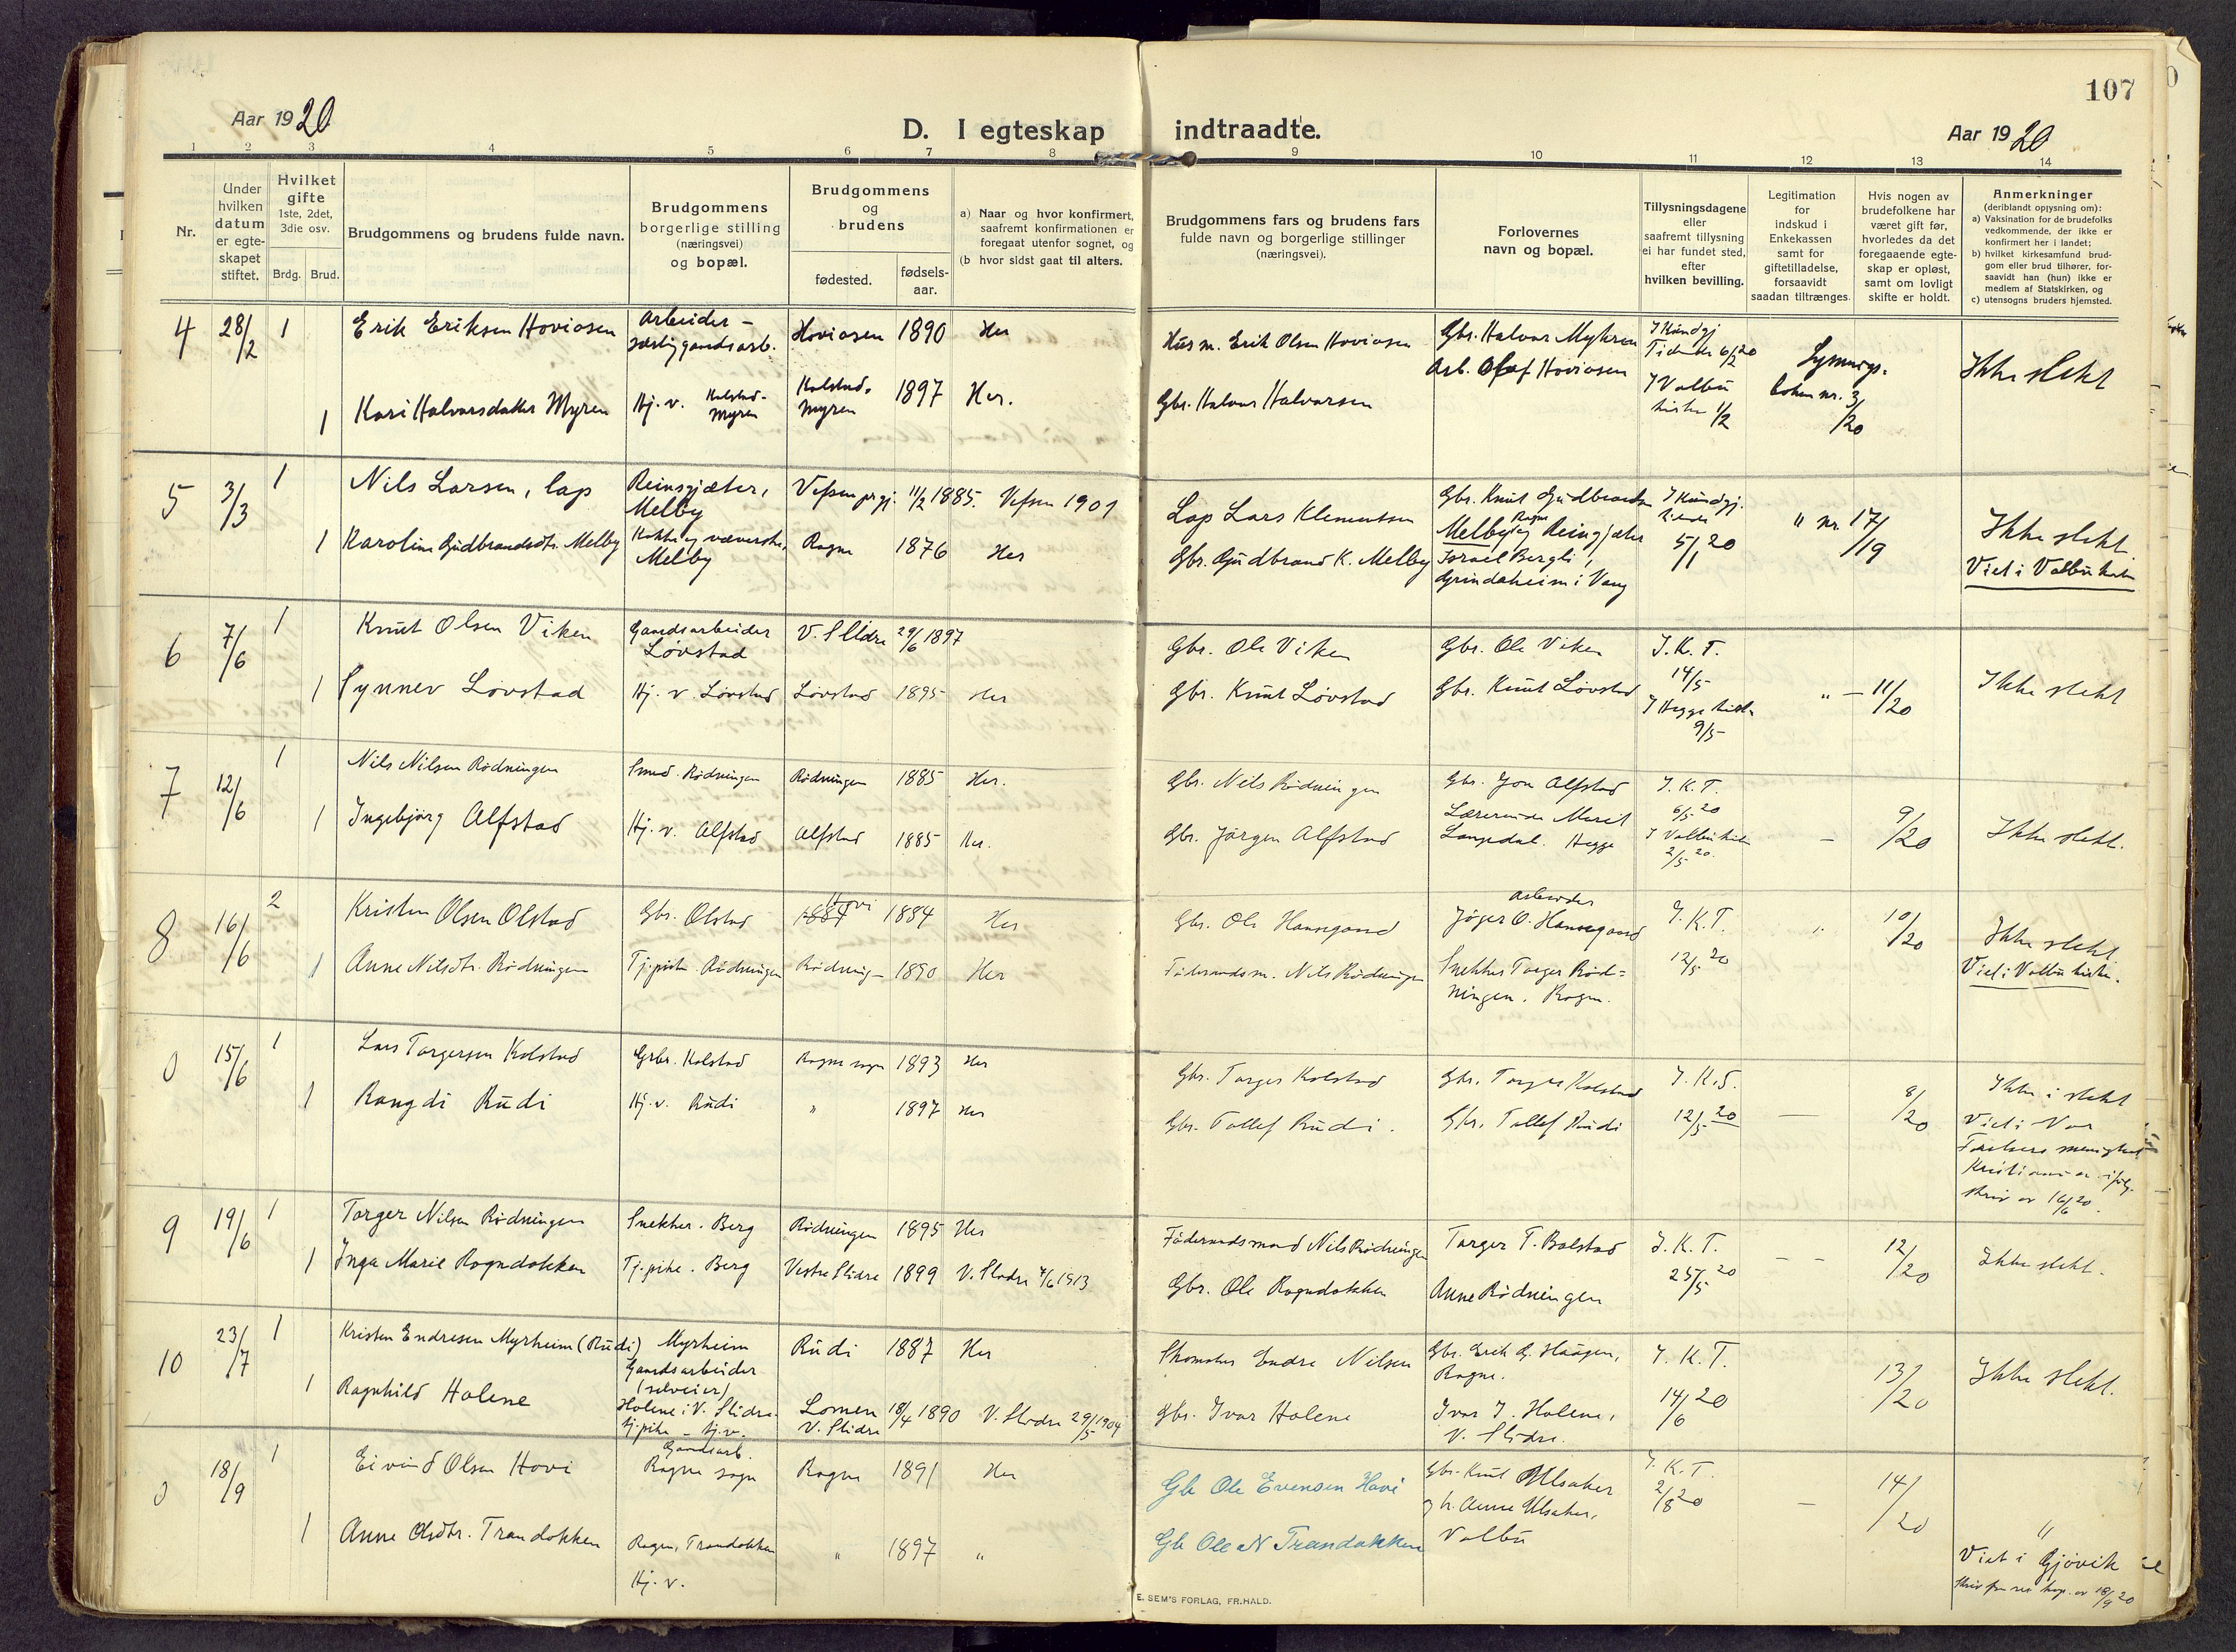 107
Aar 1920
D. I egteskap indtraadte.
Aar 1920
1 2 3 4 5 6 7 8 9 10 11 12 13 14
Nr.
Under hvilken datum er egte-skapet stiftet.
Hvilket gifte 1ste, 2det, 3die osv.
Brdg. Brud.
Brudgommens og brudens fulde navn.
Brudgommens borgerlige stilling (næringsvei) og bopæl.
Brudgommens og brudens
fødested. fødsels-aar.
a) Naar og hvor konfirmert, saafremt konfirmationen er foregaat utenfor sognet, og
(b hvor sidst gaat til alters.
Brudgommens fars og brudens fars fulde navn og borgerlige stillinger (næringsvei).
Forlovernes navn og bopæl.
Tillysningsdagene eller saafremt tillysning ei har fundet sted, efter hvilken bevilling.
Legitimation for indskud i Enkekassen samt for giftetilladelse, forsaavidt saadan tiltrænges.
Hvis nogen av brudefolkene har været gift før, hvorledes da det foregaaende egte-skap er opløst, samt om lovligt skifte er holdt.
Anmerkninger (deriblandt oplysning om):
a) Vaksination for de brudefolks vedkommende, der ikke er konfirmert her i landet;
b) hvilket kirkesamfund brud-gom eller brud tilhører, for-saavidt han (hun) ikke er medlem af Statskirken, og
c) utensogns bruders hjemsted.
4 28/2 1 Erik Eriksen Hoviosen Arbeider - særlig gaardsarb. Hoviosen 1890 Her Husm. Erik Olsen Hoviosen Gbr. Halvor Myhren J Kundgj Tidende 6/2 20 Lysnings.
1 Kari Halvorsdatter Myren Hj. v. Kolstad-Myren Kolstad-myren 1897 Her. Gbr. Halvor Halvorsen Arb. Olaf Hoviosen J Volbu kirke 1/2 nr. 3/20 Ikke slekt
5 3/3 1 Nils Larsen, lap Reinsgjæter, Melby Vefsen prgj. 11/2 1885. Vefsn 1901 Lap Lars Klementsen Gbr. Knut Gudbrandsen Melby Rogne og Reingjæter J Kundgj. tidende " nr. 17/19 Ikke slekt.
1 Karoline Gudbrandsdtr. Melby Kokke og væverske, Melby Rogne 1876 Her Gbr. Gudbrand K. Melby Israel Bergli, Grindaheim i Vang 5/1 20 Viet i Volbu kirke
6 7/6 1 Knut Olsen Viken Gaardsarbeider Løvstad V. Slidre 29/6 1897 Gbr. Ole Viken Gbr. Ole Viken J. K. T. 14/5
1 Synnev Løvstad Hj. v. Løvstad Løvstad 1895 Her Gbr. Knut Løvstad Gbr. Knut Løvstad J Hegge kirke 9/5 " — 11/20 Ikke slekt
7 12/6 1 Nils Nilsen Rødningen Smed. Rødningen Rødningen 1885 Her. Gbr. Nils Rødningen Gbr. Jon Alfstad J. K. T. 6/5 20
1 Ingebjørg Alfstad Hj. v. Alfstad Alfstad 1885 Her. Gbr. Jørgen Alfstad Lærerinde Marit Langedal. Hegge J Volbu kirke 2/5 20. — 9/20 Ikke slekt.
8 16/6 2 Kristen Olsen Olstad Gbr. Olstad Hovi 1884 Her Gbr. Ole Hansegaard arbeider Jøger O. Hansegaard J. K. T. " 10/20 Ikke slekt
1 Anne Nilsdtr. Rødningen Tj.pike. Rødningen Rødning- 1890 Her Føderaadsm. Nils Rødningen Snekker Torger Rød-ningen. Rogn. 12/5 20 Viet i Volbu kirke.
0 15/6 1 Lars Torgersen Kolstad Grbr. Kolstad Rogne sogn 1893 Her Gbr. Torger Kolstad Gbr. Torger Kolstad J. K. T. 8/20 Ikke i slekt
1 Rangdi Rudi Hj. v. Rudi " 1897 Her Gbr. Tollef Rudi. Gbr. Tollef Rudi 12/5 20 — Viet i Vor Frelsers menighet Kristiania ifølg. skriv av 16/6 20.
9 19/6 1 Torger Nilsen Rødningen Snekker. Berg Rødningen 1895 Her Føderaadsmand Nils Rødningen Torger T. Bolstad J. K. T. — — 12/20 Ikke slekt.
1 Inga Marie Rogndokken Tj.pike. Berg Vestre Slidre 1899 V. Slidre 7/6 1913 Gbr. Ole Rogndokken Anne Rødningen 25/5 20
10 23/7 1 Kristen Endresen Myrheim (Rudi) Myrheim Gaardsarbeider (selveier) Rudi 1887 Her Skomaker Endre Nilsen Gbr. Erik G. Haugen, Rogne. J. K. T. 13/20 Ikke slekt.
1 Ragnhild Holene Holene i V. Slidre. tj.pike - hj.v. Lomen V. Slidre 18/4 1890 V. Slidre 29/5 1904 Gbr. Ivar Holene Ivar I. Holene, V. Slidre. 14/6 20
0 18/9 1 Eivind Olsen Hovi Gaardsarb. Rogne sogn Rogne 1891 Her Gb Ole Evensen Hovi Gbr. Knut Ulsaker J. K. T. 2/8 20 — 14/20 "
1 Anne Olsdtr. Trandokken Rogne, Trandokken Hj. v. " 1897 " Gb Ole N Trandokken og h. Anne Ulsaker, Volbu Viet i Gjøvik
18/9 20
E. SEM'S FORLAG, FR.HALD.